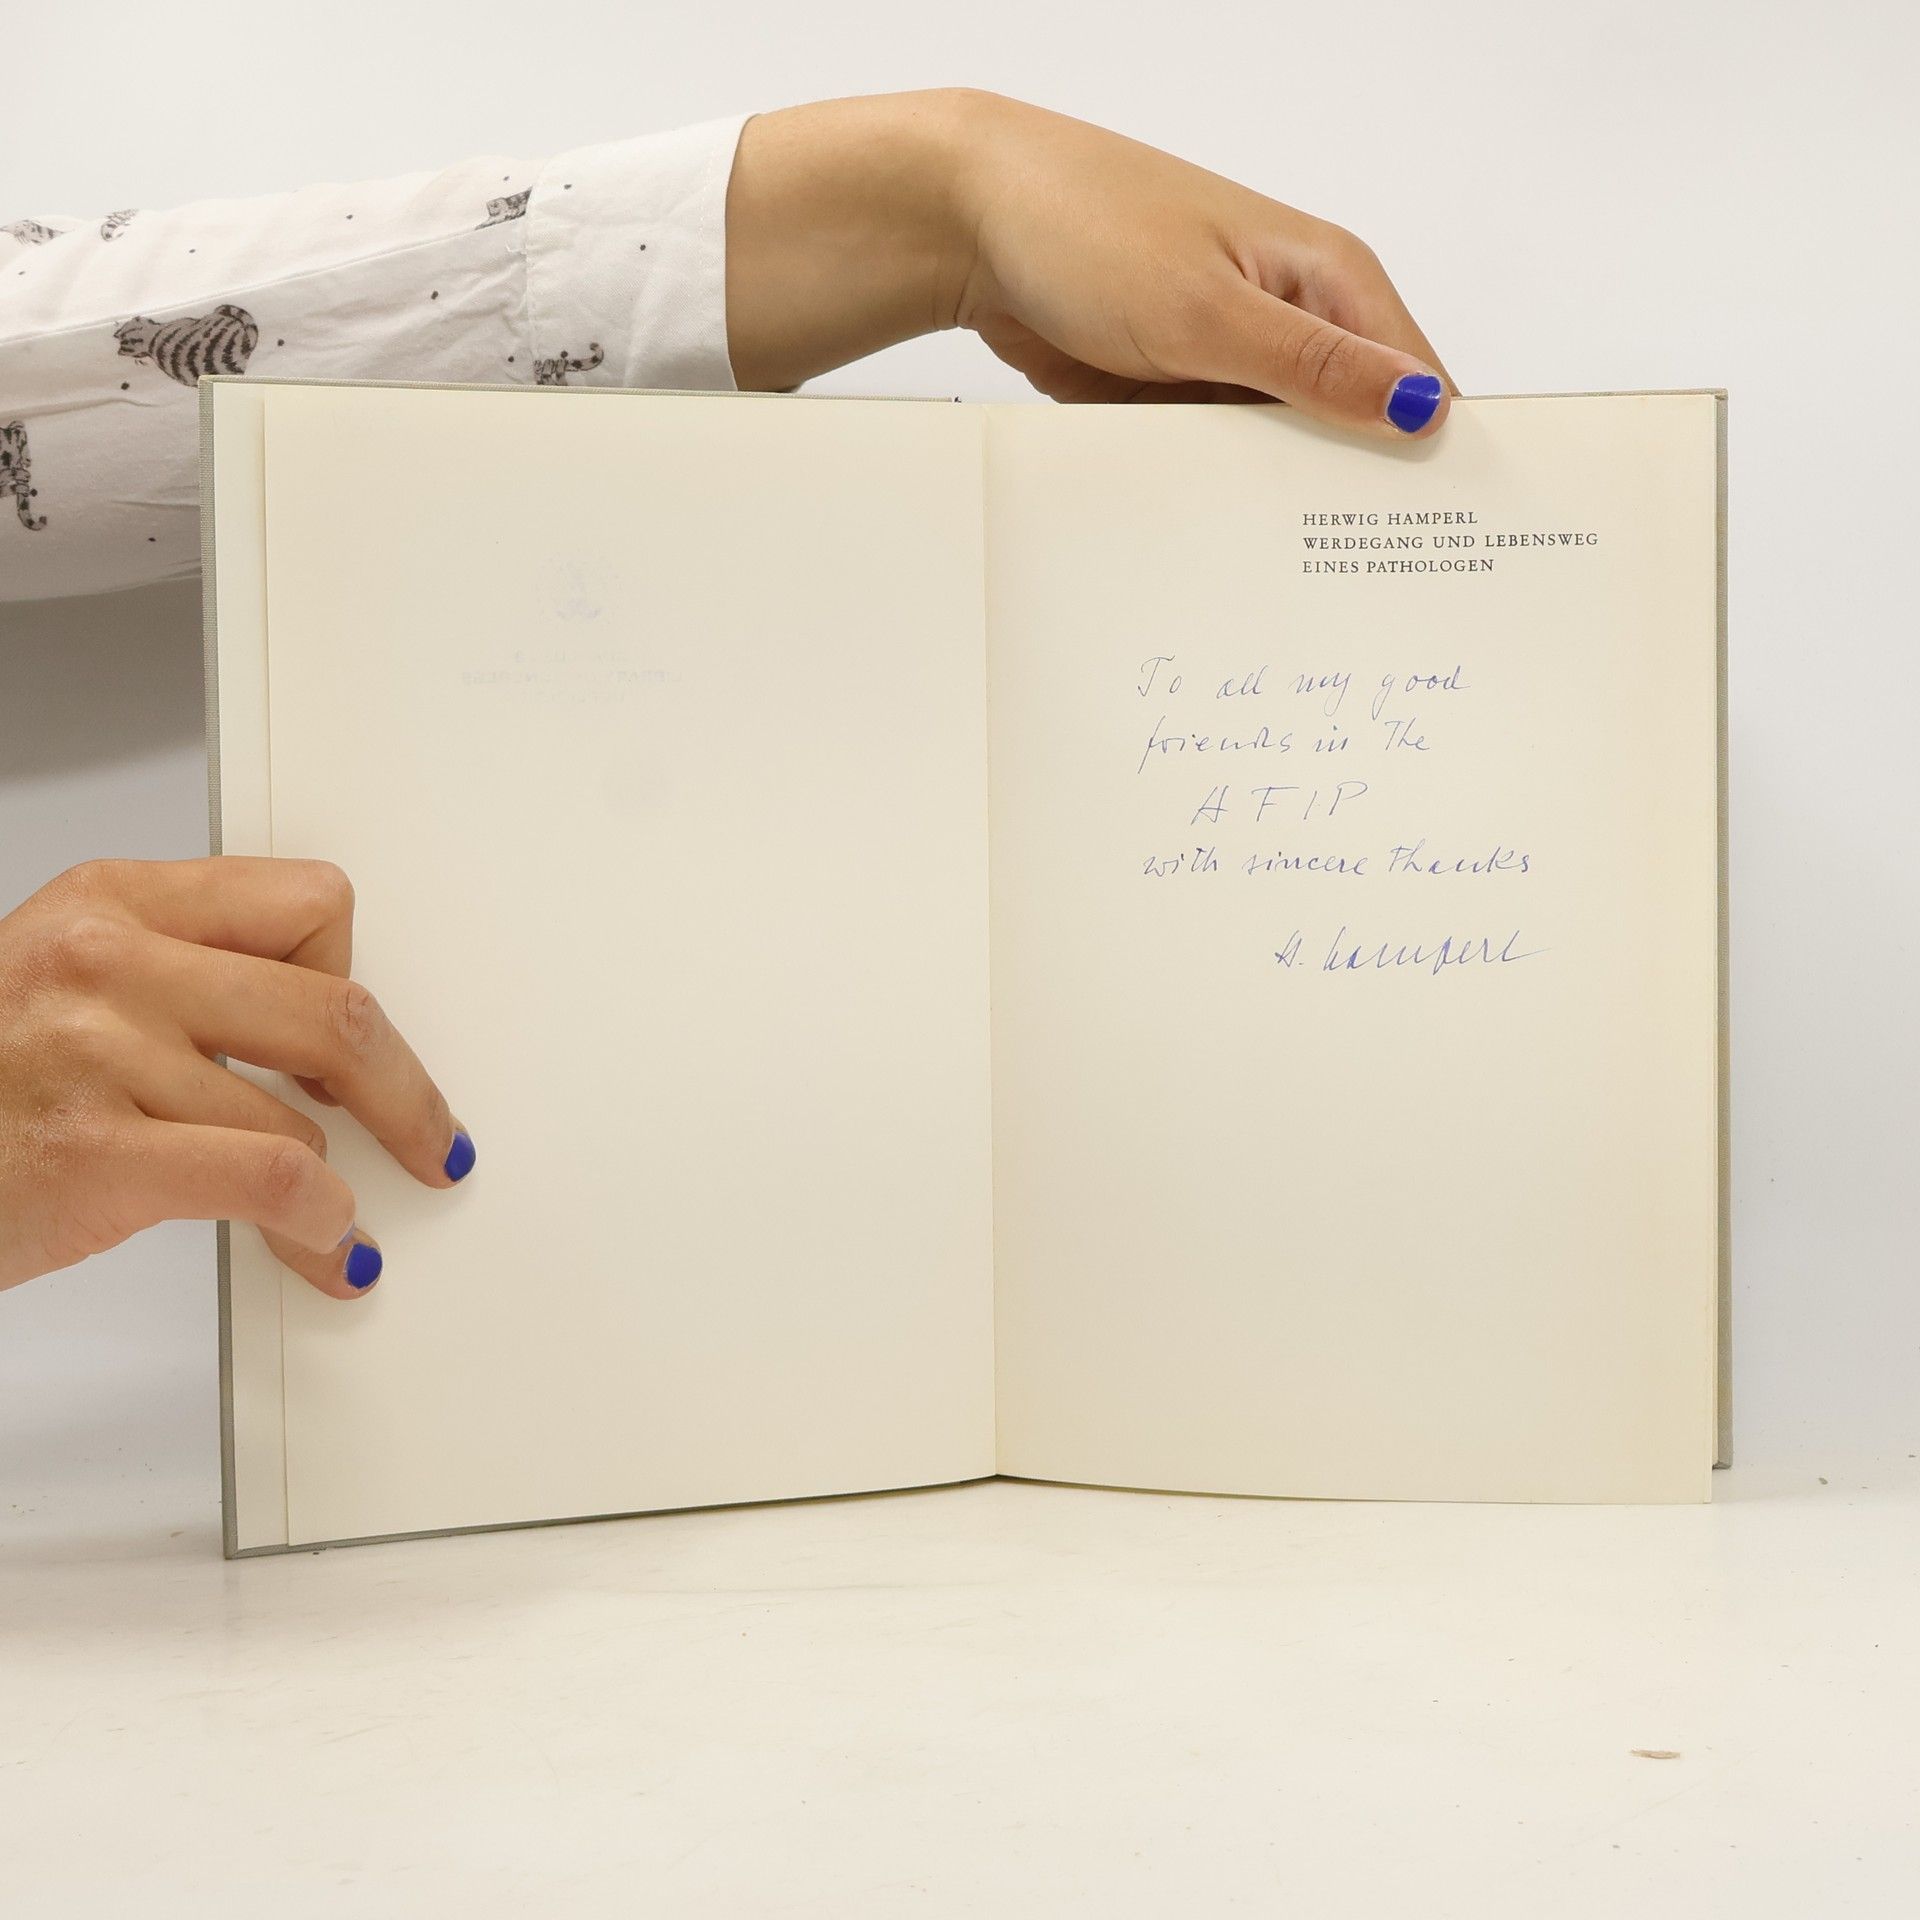 HERWIG HAMPERL
WERDEGANG UND LEBENSWEG
EINES PATHOLOGEN
To all my good
friends in the
A F I P
with sincere thanks
H. Hamperl